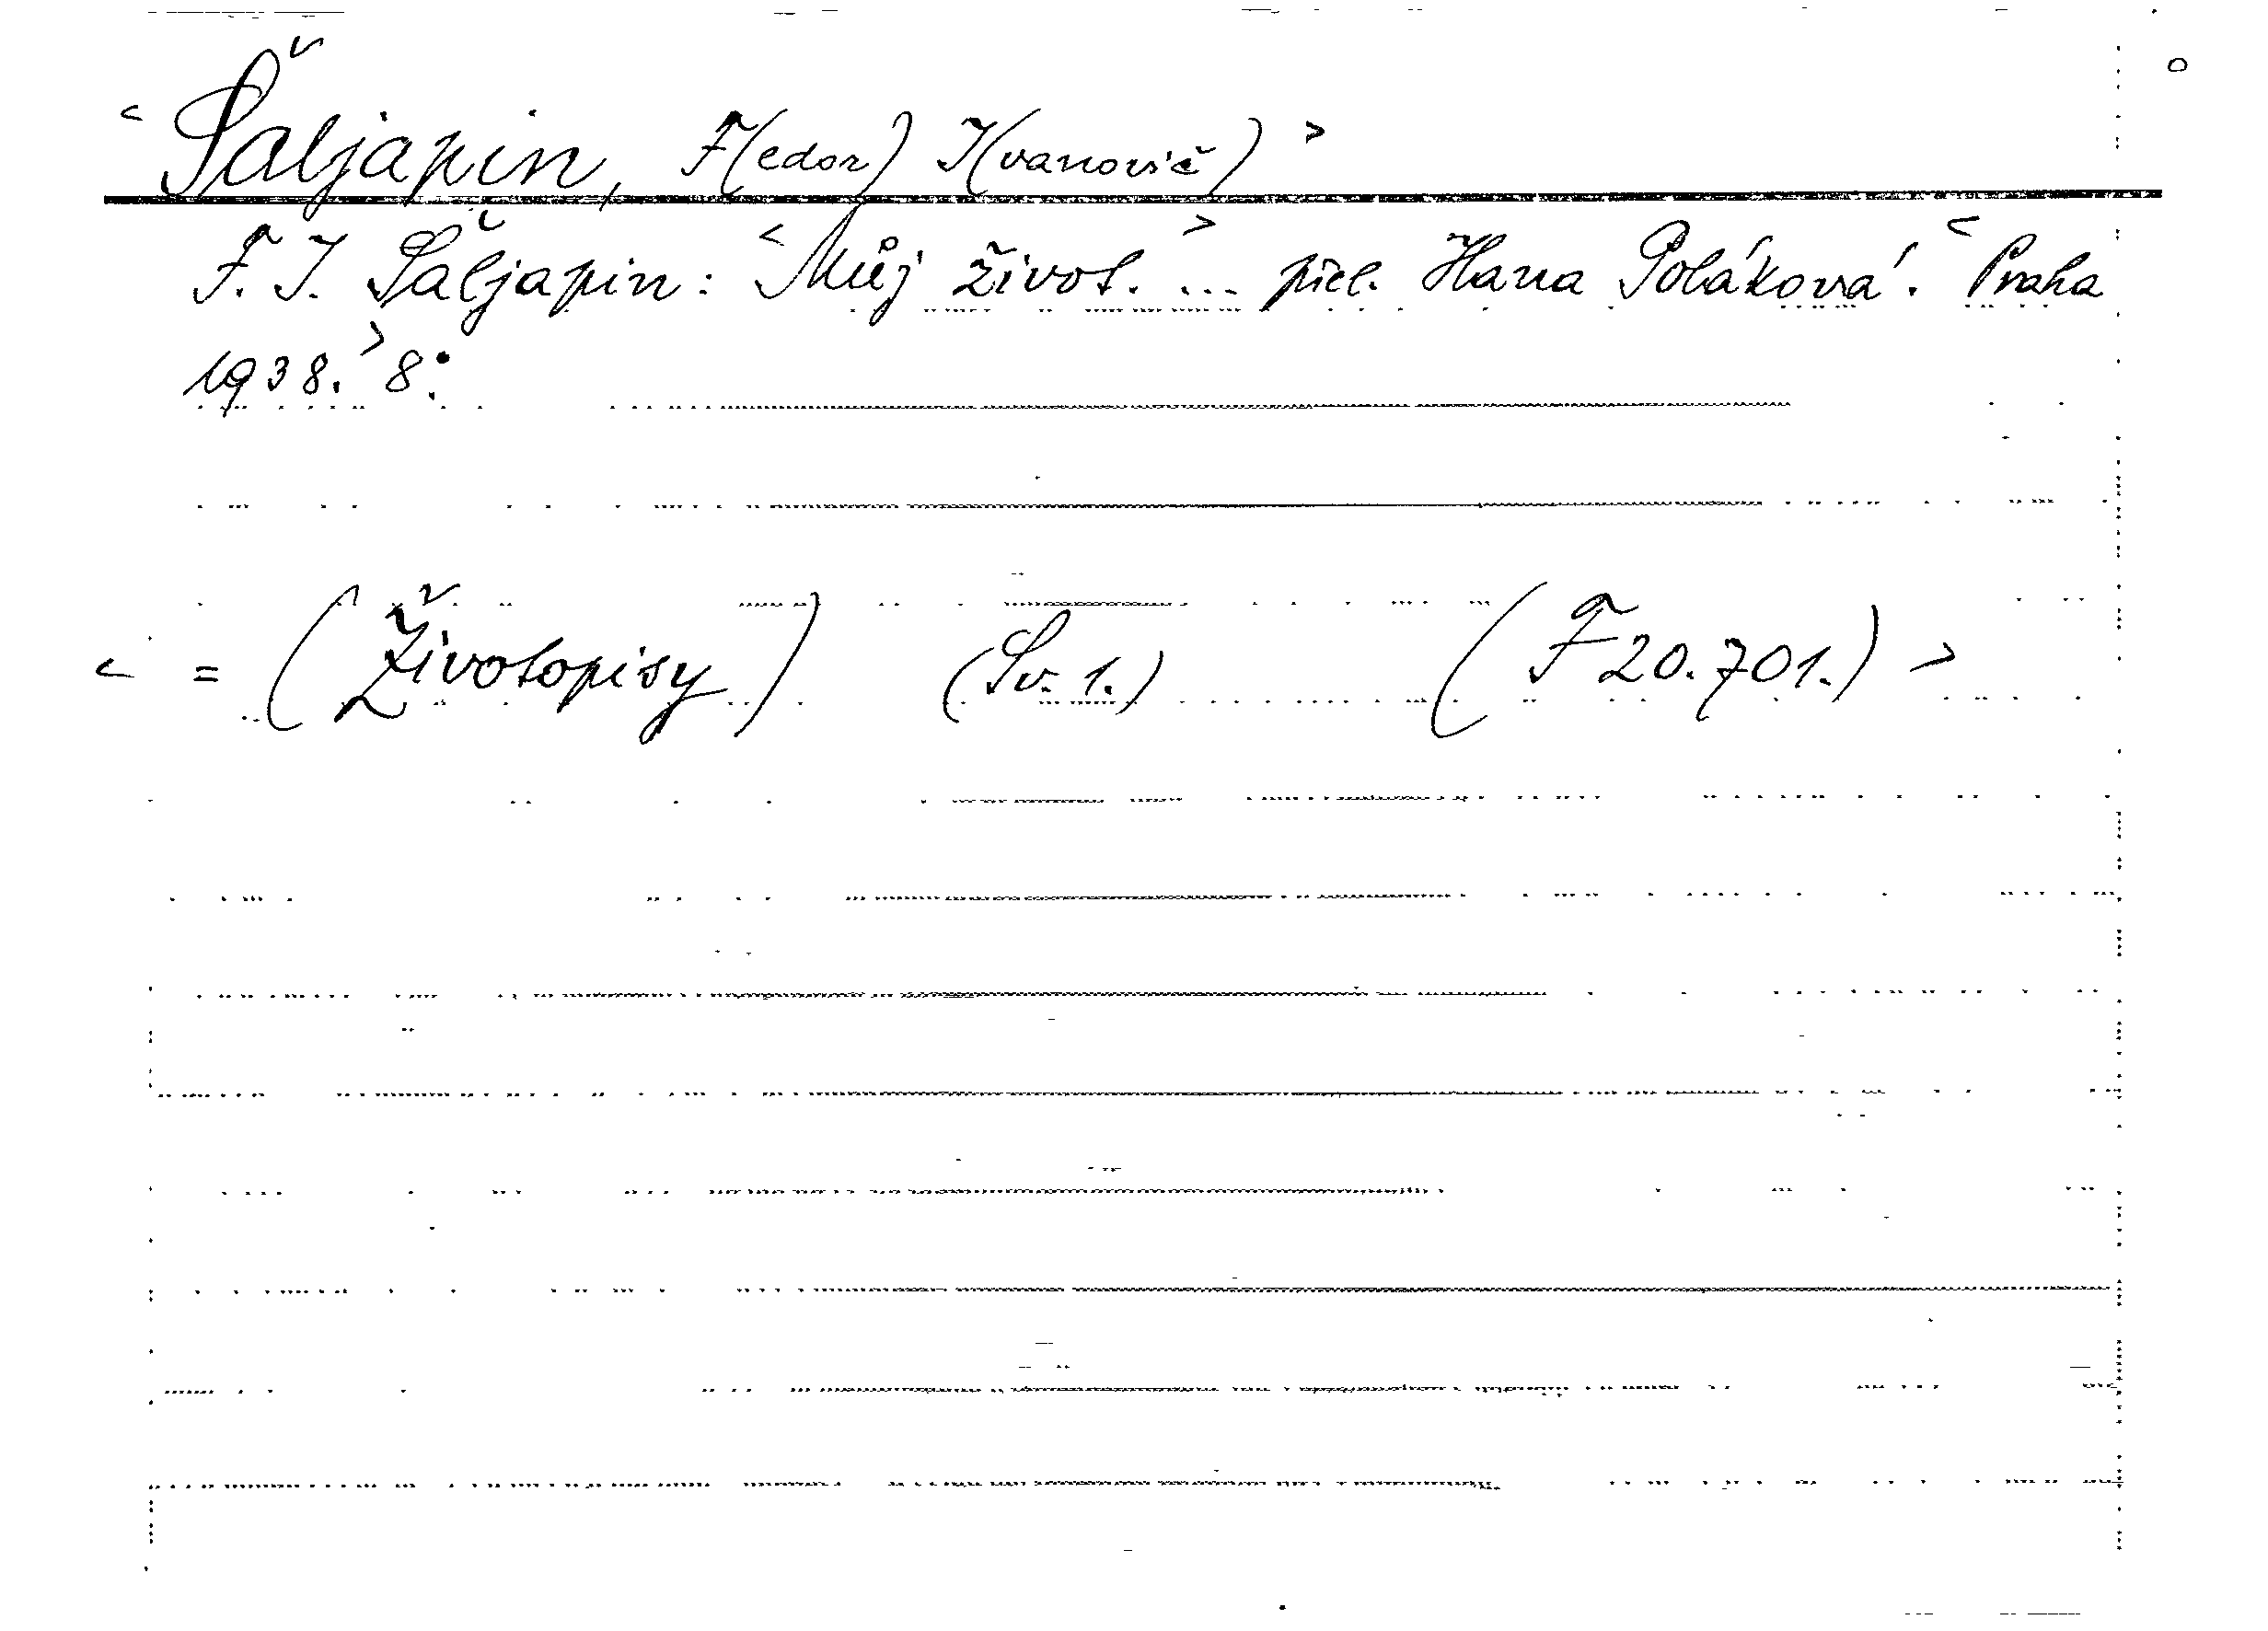 < Šaljapin, F(edor) I(vanovič) >
F. I. Šaljapin: < Můj život. > ... přel. Hana Poláková. < Praha
1938. > 8°.
< = (Životopisy) (Sv. 1.) (F 20.701.) >